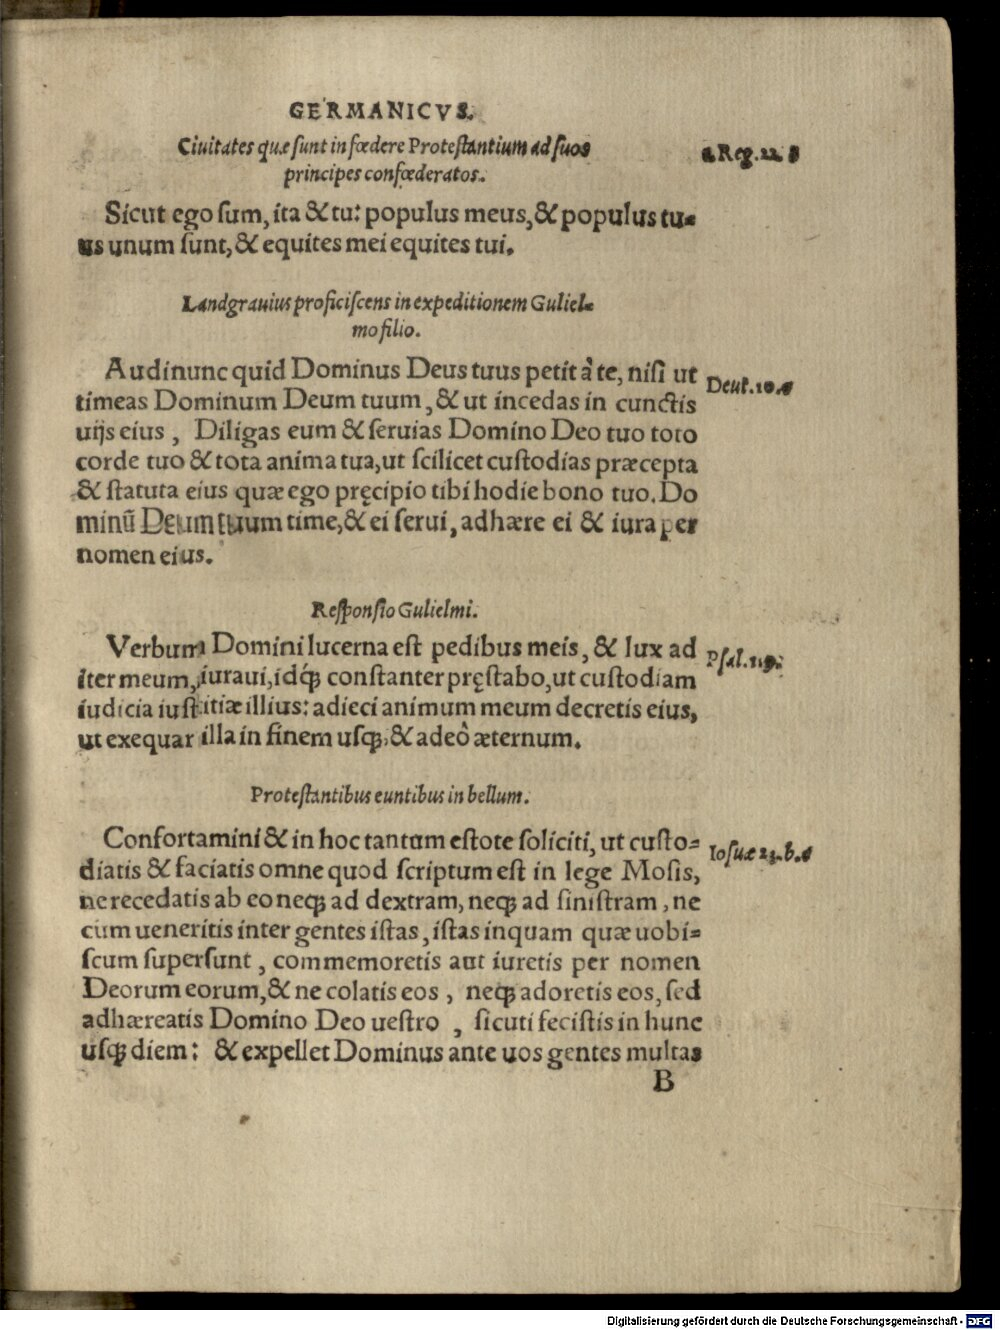 GERMANICVS.
Ciuitates quæ sunt in fœdere Protestantium ad suos
principes confœderatos.
Reg. 22.
Sicut ego sum, ita & tu: populus meus, & populus tu-
us unum sunt, & equites mei equites tui.
Landgrauius proficiscens in expeditionem Guliel-
mo filio.
Audi nunc quid Dominus Deus tuus petit à te, nisi ut
Deut. 10.
timeas Dominum Deum tuum, & ut incedas in cunctis
uijs eius, Diligas eum & seruias Domino Deo tuo toto
corde tuo & tota anima tua, ut scilicet custodias præcepta
& statuta eius quæ ego pręcipio tibi hodie bono tuo. Do
minũ Deum tuum time, & ei serui, adhære ei & iura per
nomen eius.
Responsio Gulielmi.
Verbum Domini lucerna est pedibus meis, & lux ad
Psal.
iter meum, iuraui, idq́; constanter pręstabo, ut custodiam
iudicia iustitiæ illius: adieci animum meum decretis eius,
ut exequar illa in finem usq;, & adeò æternum.
Protestantibus euntibus in bellum.
Confortamini & in hoc tantum estote soliciti, ut custo-
Iosuæ 23. b.
diatis & faciatis omne quod scriptum est in lege Mosis,
ne recedatis ab eo neq; ad dextram, neq; ad sinistram, ne
cum ueneritis inter gentes istas, istas inquam quæ uobi-
scum supersunt, commemoretis aut iuretis per nomen
Deorum eorum, & ne colatis eos, neq; adoretis eos, sed
adhæreatis Domino Deo uestro, sicuti fecistis in hunc
usq; diem: & expellet Dominus ante uos gentes multas
B
Digitalisierung gefördert durch die Deutsche Forschungsgemeinschaft - DFG